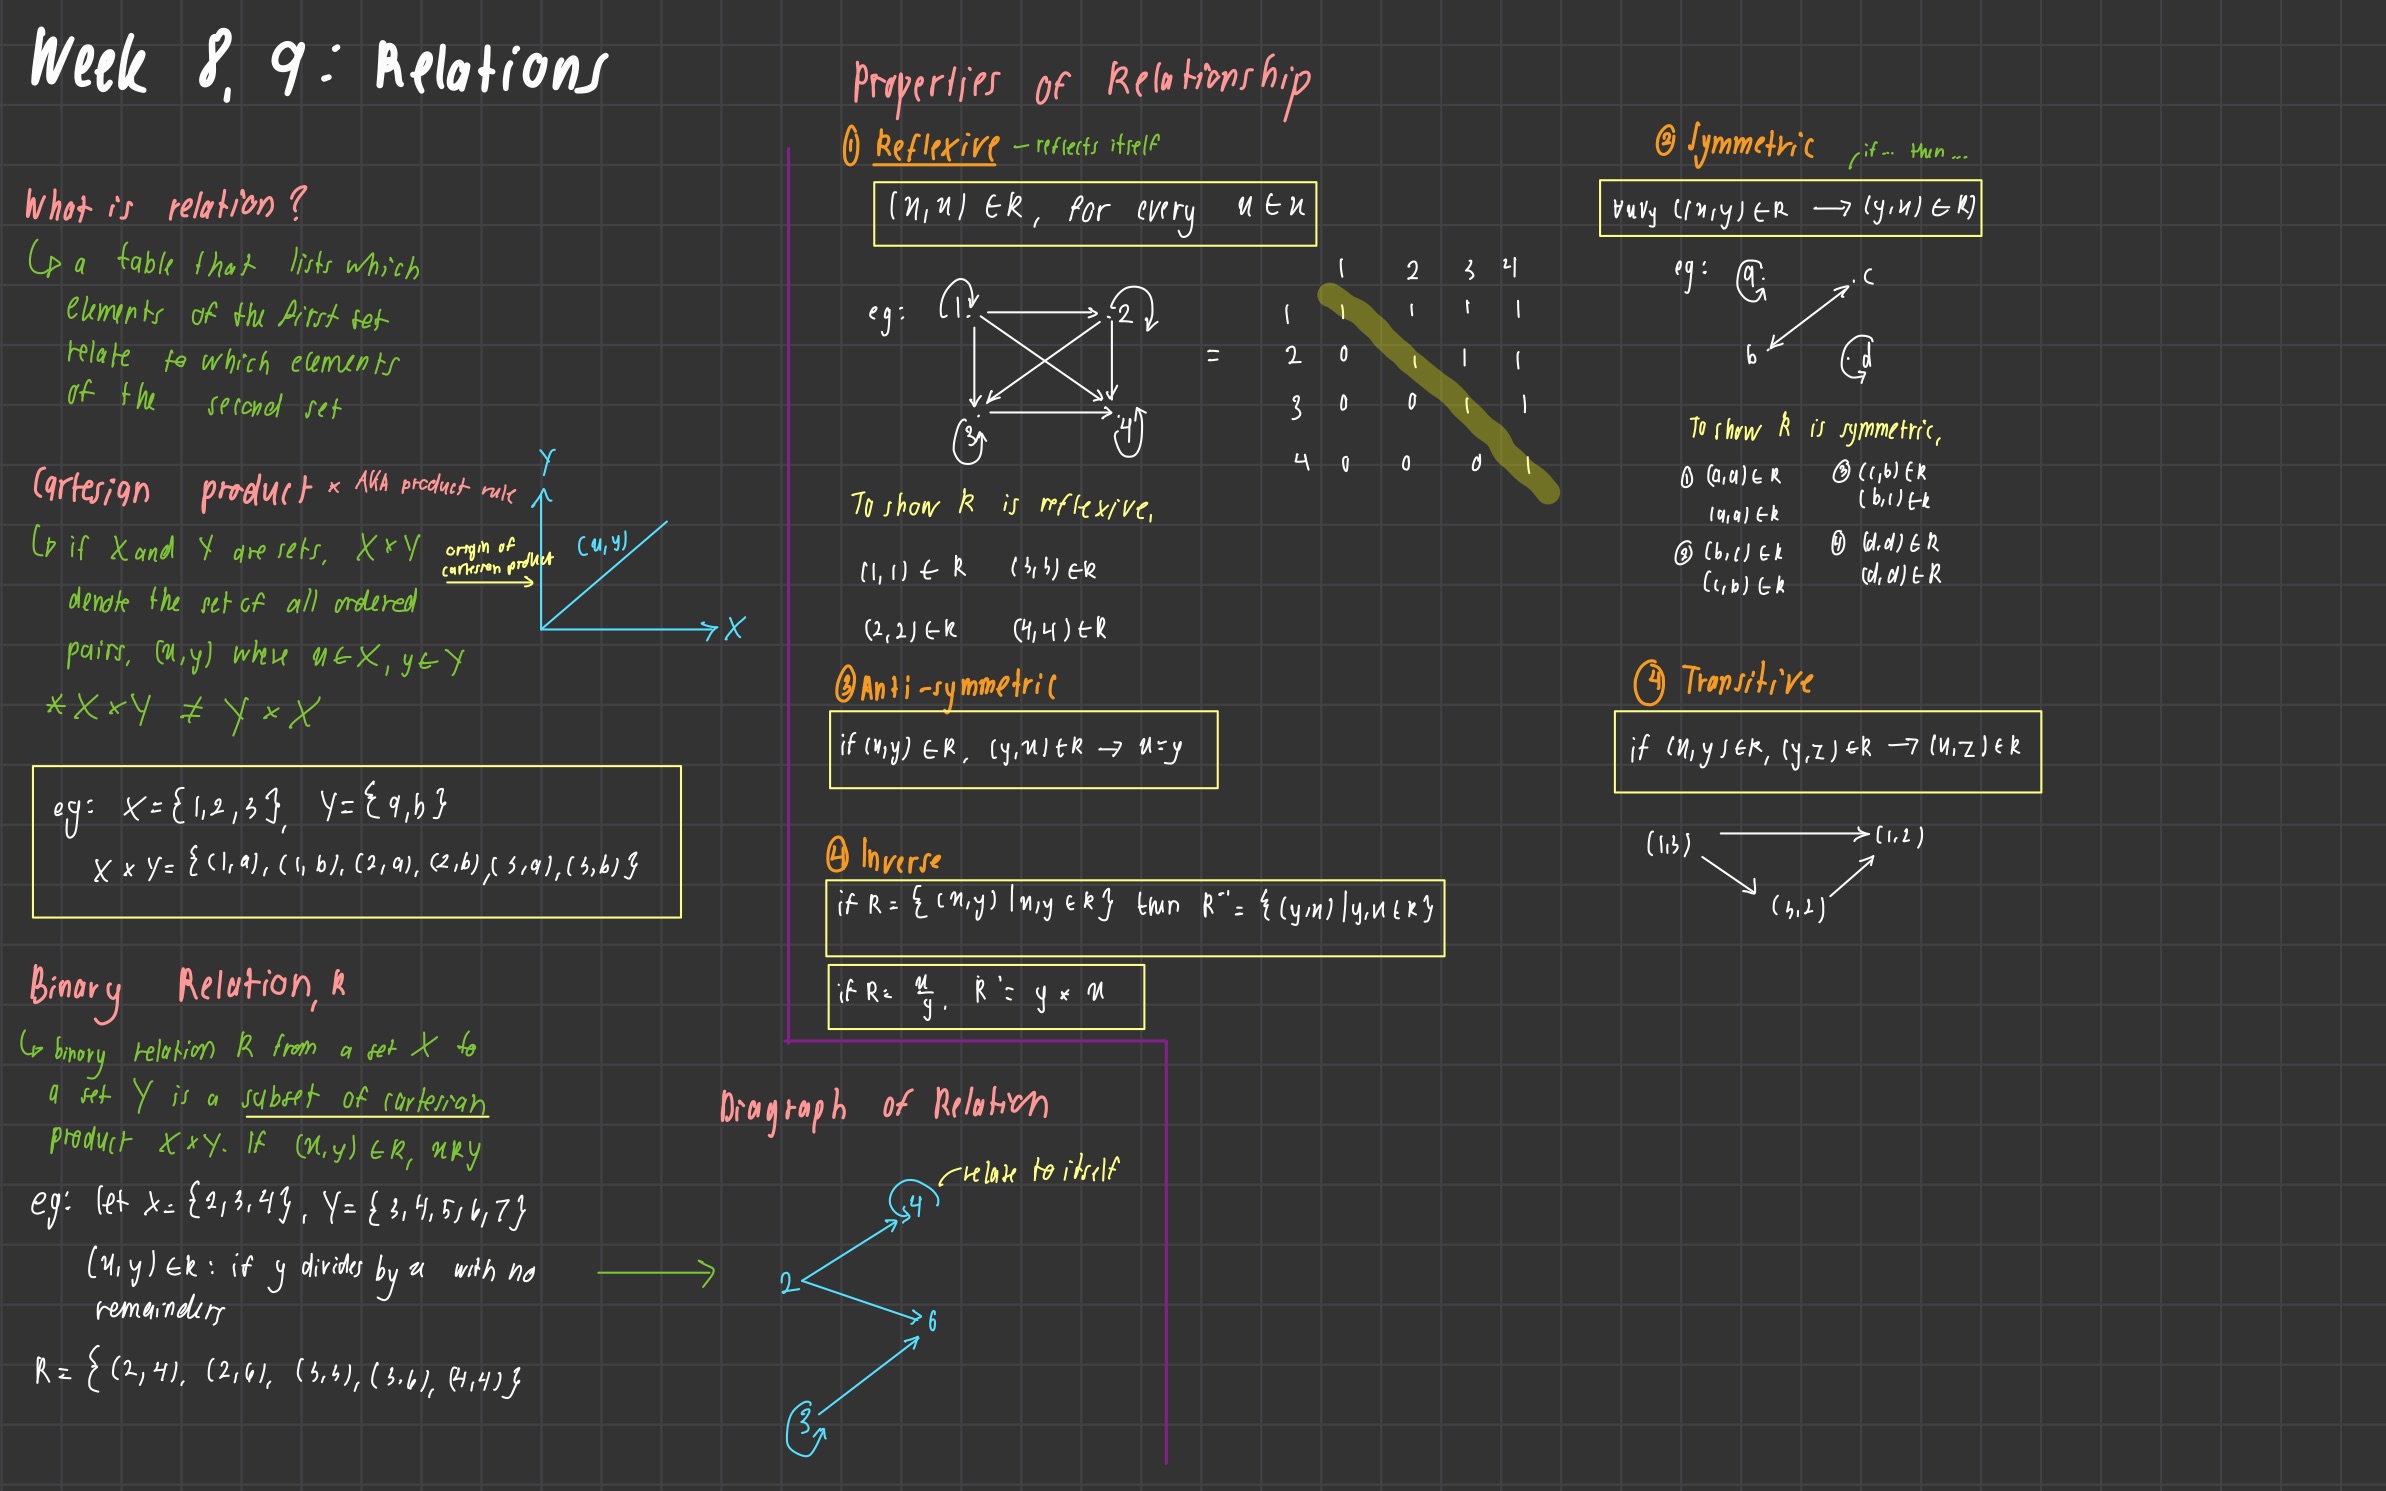 Week 8, 9: Relations
What is relation?
↳ a table that lists which
elements of the first set
relate to which elements
of the second set
Cartesian product * AKA product rule
↳ if X and Y are sets, X × Y
denote the set of all ordered
pairs, (x,y) where x ∈ X, y ∈ Y
* X × Y ≠ Y × X
origin of
cartesian product
Y
(x,y)
X
eg: X = {1,2,3}, Y = {a,b}
X × Y = {(1,a), (1,b), (2,a), (2,b), (3,a), (3,b)}
Binary Relation, R
↳ binary relation R from a set X to
a set Y is a subset of cartesian
product X × Y. If (x,y) ∈ R, xRy
eg: let X = {2,3,4}, Y = {3,4,5,6,7}
(x,y) ∈ R : if y divides by x with no
remainders
R = {(2,4), (2,6), (3,3), (3,6), (4,4)}
Properties of Relationship
① Reflexive - reflects itself
(x,x) ∈ R, for every x ∈ x
eg: 1 2
3 4
=
1 2 3 4
1 1 1 1 1
2 0 1 1 1
3 0 0 1 1
4 0 0 0 1
To show R is reflexive,
(1,1) ∈ R (3,3) ∈ R
(2,2) ∈ R (4,4) ∈ R
② Symmetric
if... then...
∀x∀y ((x,y) ∈ R → (y,x) ∈ R)
eg: a c
b d
To show R is symmetric,
① (a,a) ∈ R
(a,a) ∈ R
② (b,c) ∈ R
(c,b) ∈ R
③ (c,b) ∈ R
(b,c) ∈ R
④ (d,d) ∈ R
(d,d) ∈ R
③ Anti-symmetric
if (x,y) ∈ R, (y,x) ∈ R → x = y
④ Transitive
if (x,y) ∈ R, (y,z) ∈ R → (x,z) ∈ R
(1,3) → (1,2)
(3,2)
④ Inverse
if R = {(x,y) | x,y ∈ R} then R⁻¹ = {(y,x) | y,x ∈ R}
if R = x/y, R⁻¹ = y × x
Diagraph of Relation
relate to itself
4
2
6
3